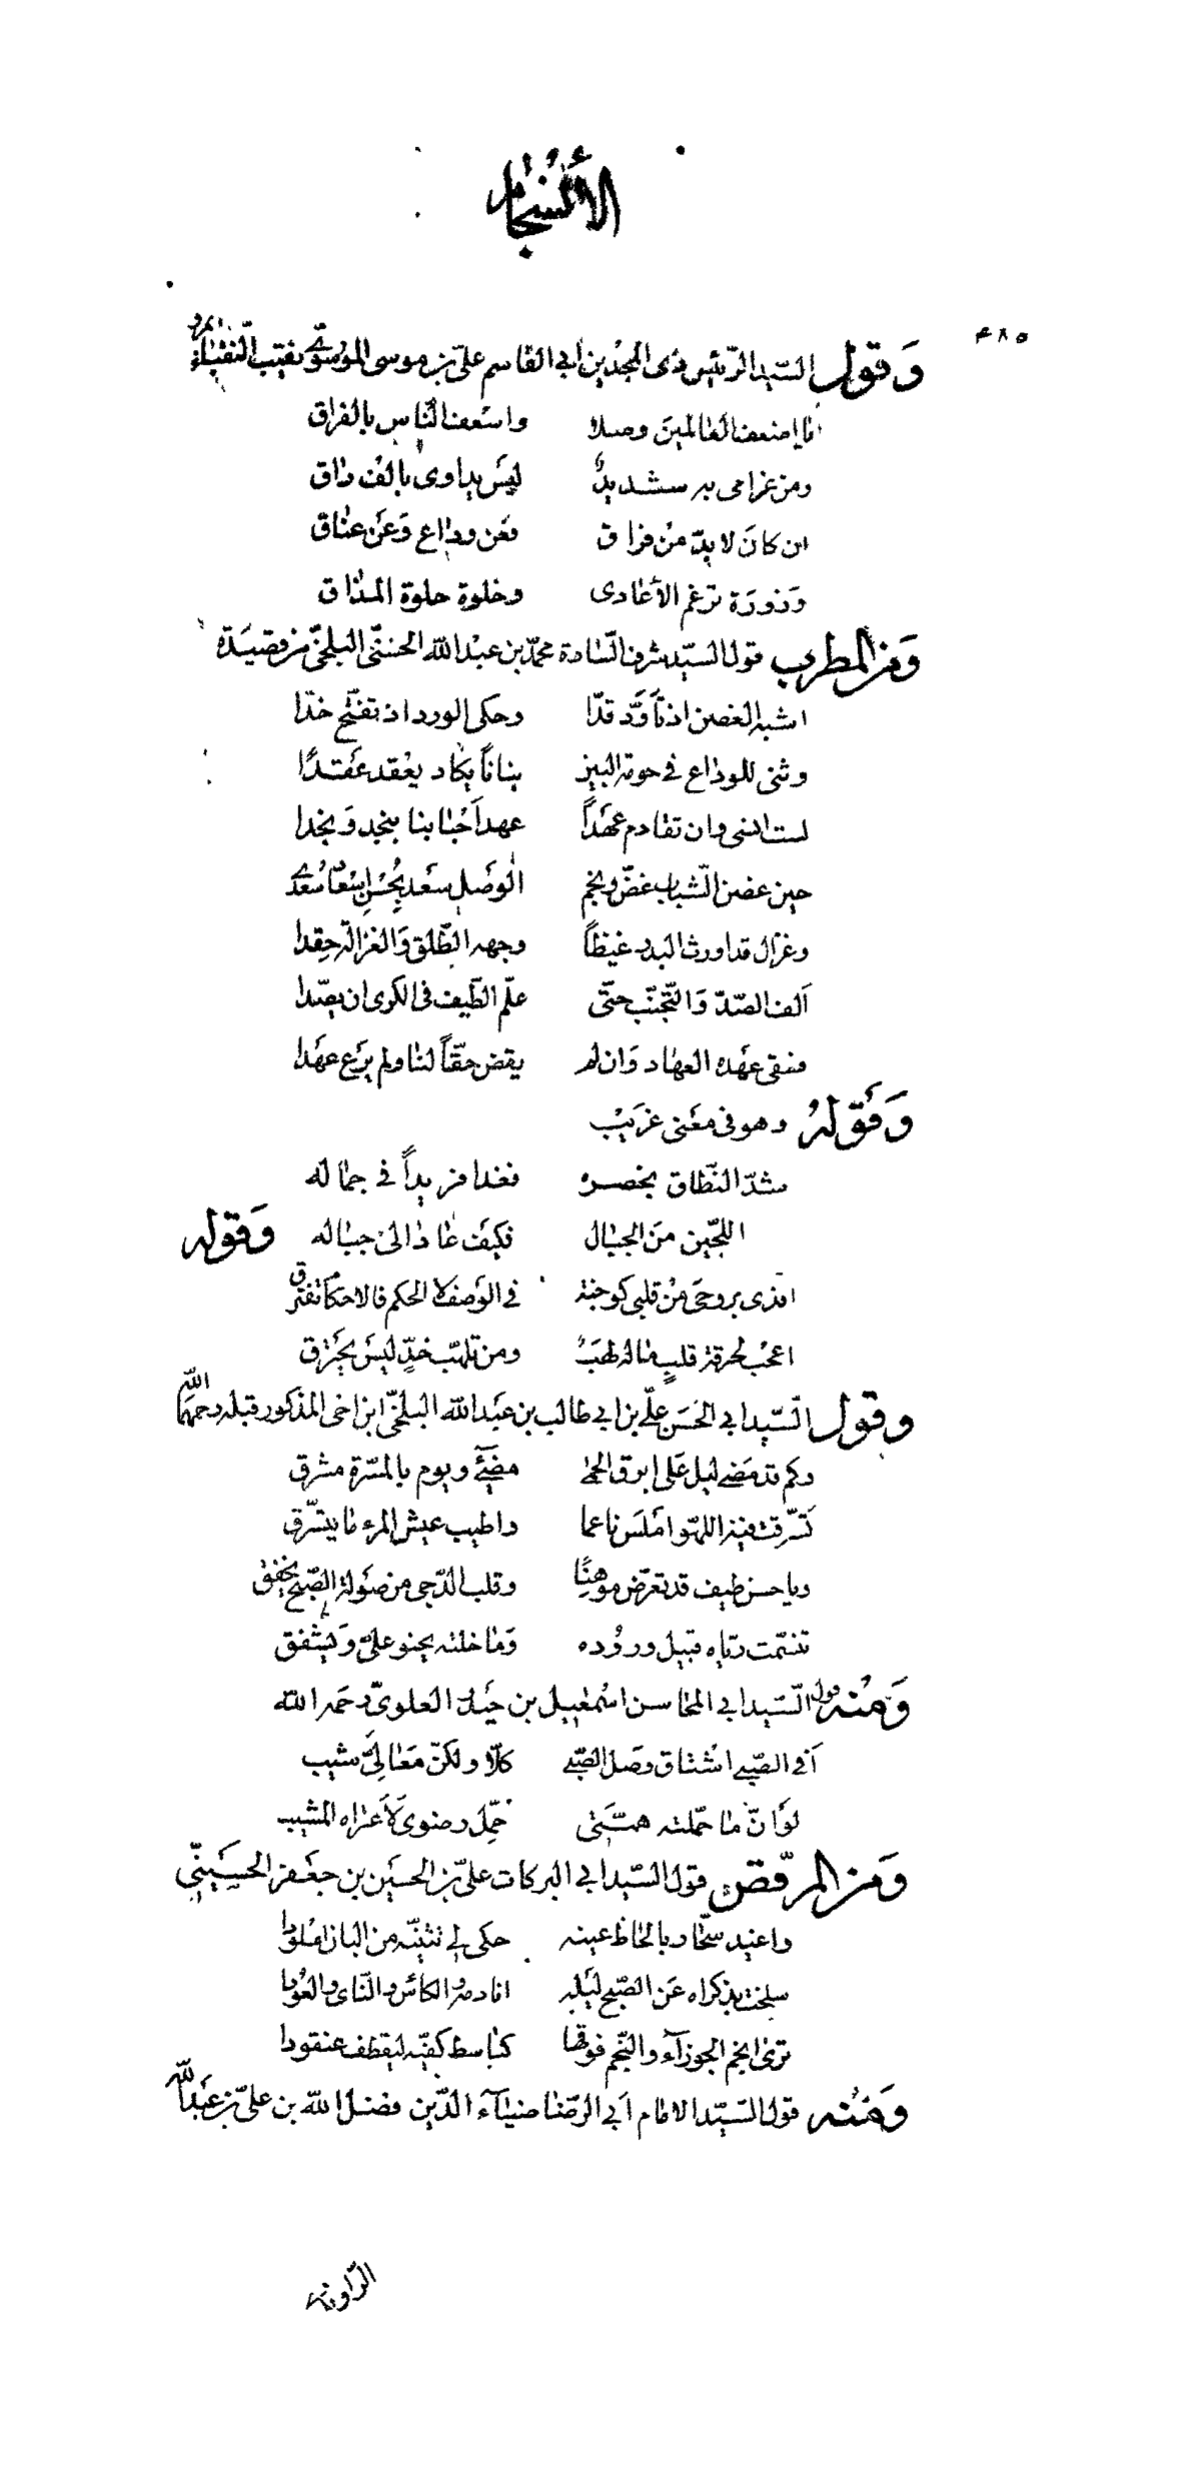 الأنسجام
٤٨٥
وَقول السّيد الرّئيس ذى المجدين ابي القاسم علىّ بن موسى الموسوىّ نقيب النّقباء بمرو
واسعف النّاس بالفراق
ومن غرامى به شديدٌ ليسَ يداوىٰ بالف راق
ان كانَ لا بدّ منْ فراق فعَن وداع وَعَن عناق
وَزورَة ترغم الأعادى وخلوة حلوة المذاق
وَمن المطرب قول السّيد شرف السّادة محمّد بن عبْد الله الحسنىّ البلخىّ من قصيدَة
اشبه الغصن اذ تأوّد قدّا وحكى الورد اذ تفتّح خدّا
وثنى للوداع فى حومة البين بناناً يكاد يعْقد عَقدًا
لست انسى وان تقادم عهَداً عهد اَحْبابنا بنجد وَنجدا
حين غصن الشّباب غضّ ونجم الوصَل سعد بحُسْن اسعاف سُعدى
وغزال قد اورث البدر غيظاً وجهه الطّلق وَالغزالة حِقدا
اَلف الصّدّ وَالتّجنّب حتّى علّم الطّيف فى الكرى ان يصّدا
فسقى عهَده العهاد وَان لم يقض حقّاً لنا ولم يرَع عهَدا
وَقَوْلهُ وهو فى معَنى غرَيبْ
شدّ النّطاق بخصره فغدا فريداً فى جماله
اللّجين منَ الجبال فكيفَ عاد الى جباله
وَقوله
افدى بروحىَ منْ قلبى كوجنته فى الوَصف لا الحكم فالاحكام تفترق
اعجْب لحرقة قلبٍ ماله لهَبٌ ومن تلهّب خدٍّ ليسَ يحَترق
وقول السّيد ابي الحسَن علىّ بن ابي طالب بن عبَد الله البلخىّ ابن اخى المذكور قبله رحمهما الله
وكم قد مضىٰ ليل عَلى ابرق الحمى مضيٓء ويوم بالمسّرة مشرق
تسّرقت فيه اللهو املسَ ناعما واطيب عيش المرء ما يتسّرق
ويا حسن طيف قد تعرّض موهنًا وقلب الدّجى من صَولة الصّبح يخفق
تنسّمت ريّاه قبيل وروُده وَما خلته يحنو علىّ وَيشفق
وَمْنه قول السّيد ابي المحاسن اسْمعيل بن حيَدر العلوىّ رحمه الله
اَنى الصّبى اشتاق وصَل الصّبى كلّا ولكنّ مَعالىَّ شيب
لوَ انّ ما حمّلته همّتى حمّل رضوىٰ لاَعتراه المشيب
وَمن المرقّص قول السّيد ابي البركات علىّ بن الحسيَن بن جعَفر الحسيَنىّ
واغيد سحّار بالحاظ عينه حكى لى تثنّيه من البان املودا
سلخت بذكراه عَن الصّبح ليَله انادمه والكاسَ والنّاى والعُودا
ترىٰ انجم الجوزآء والنّجم فوقها كباسط كفّيه ليقطف عنقودا
وَمْنه قول السّيّد الامام اَبي الرّضا ضيآء الدّين فضل الله بن علىّ بن عبَد الله
الرّاوندى